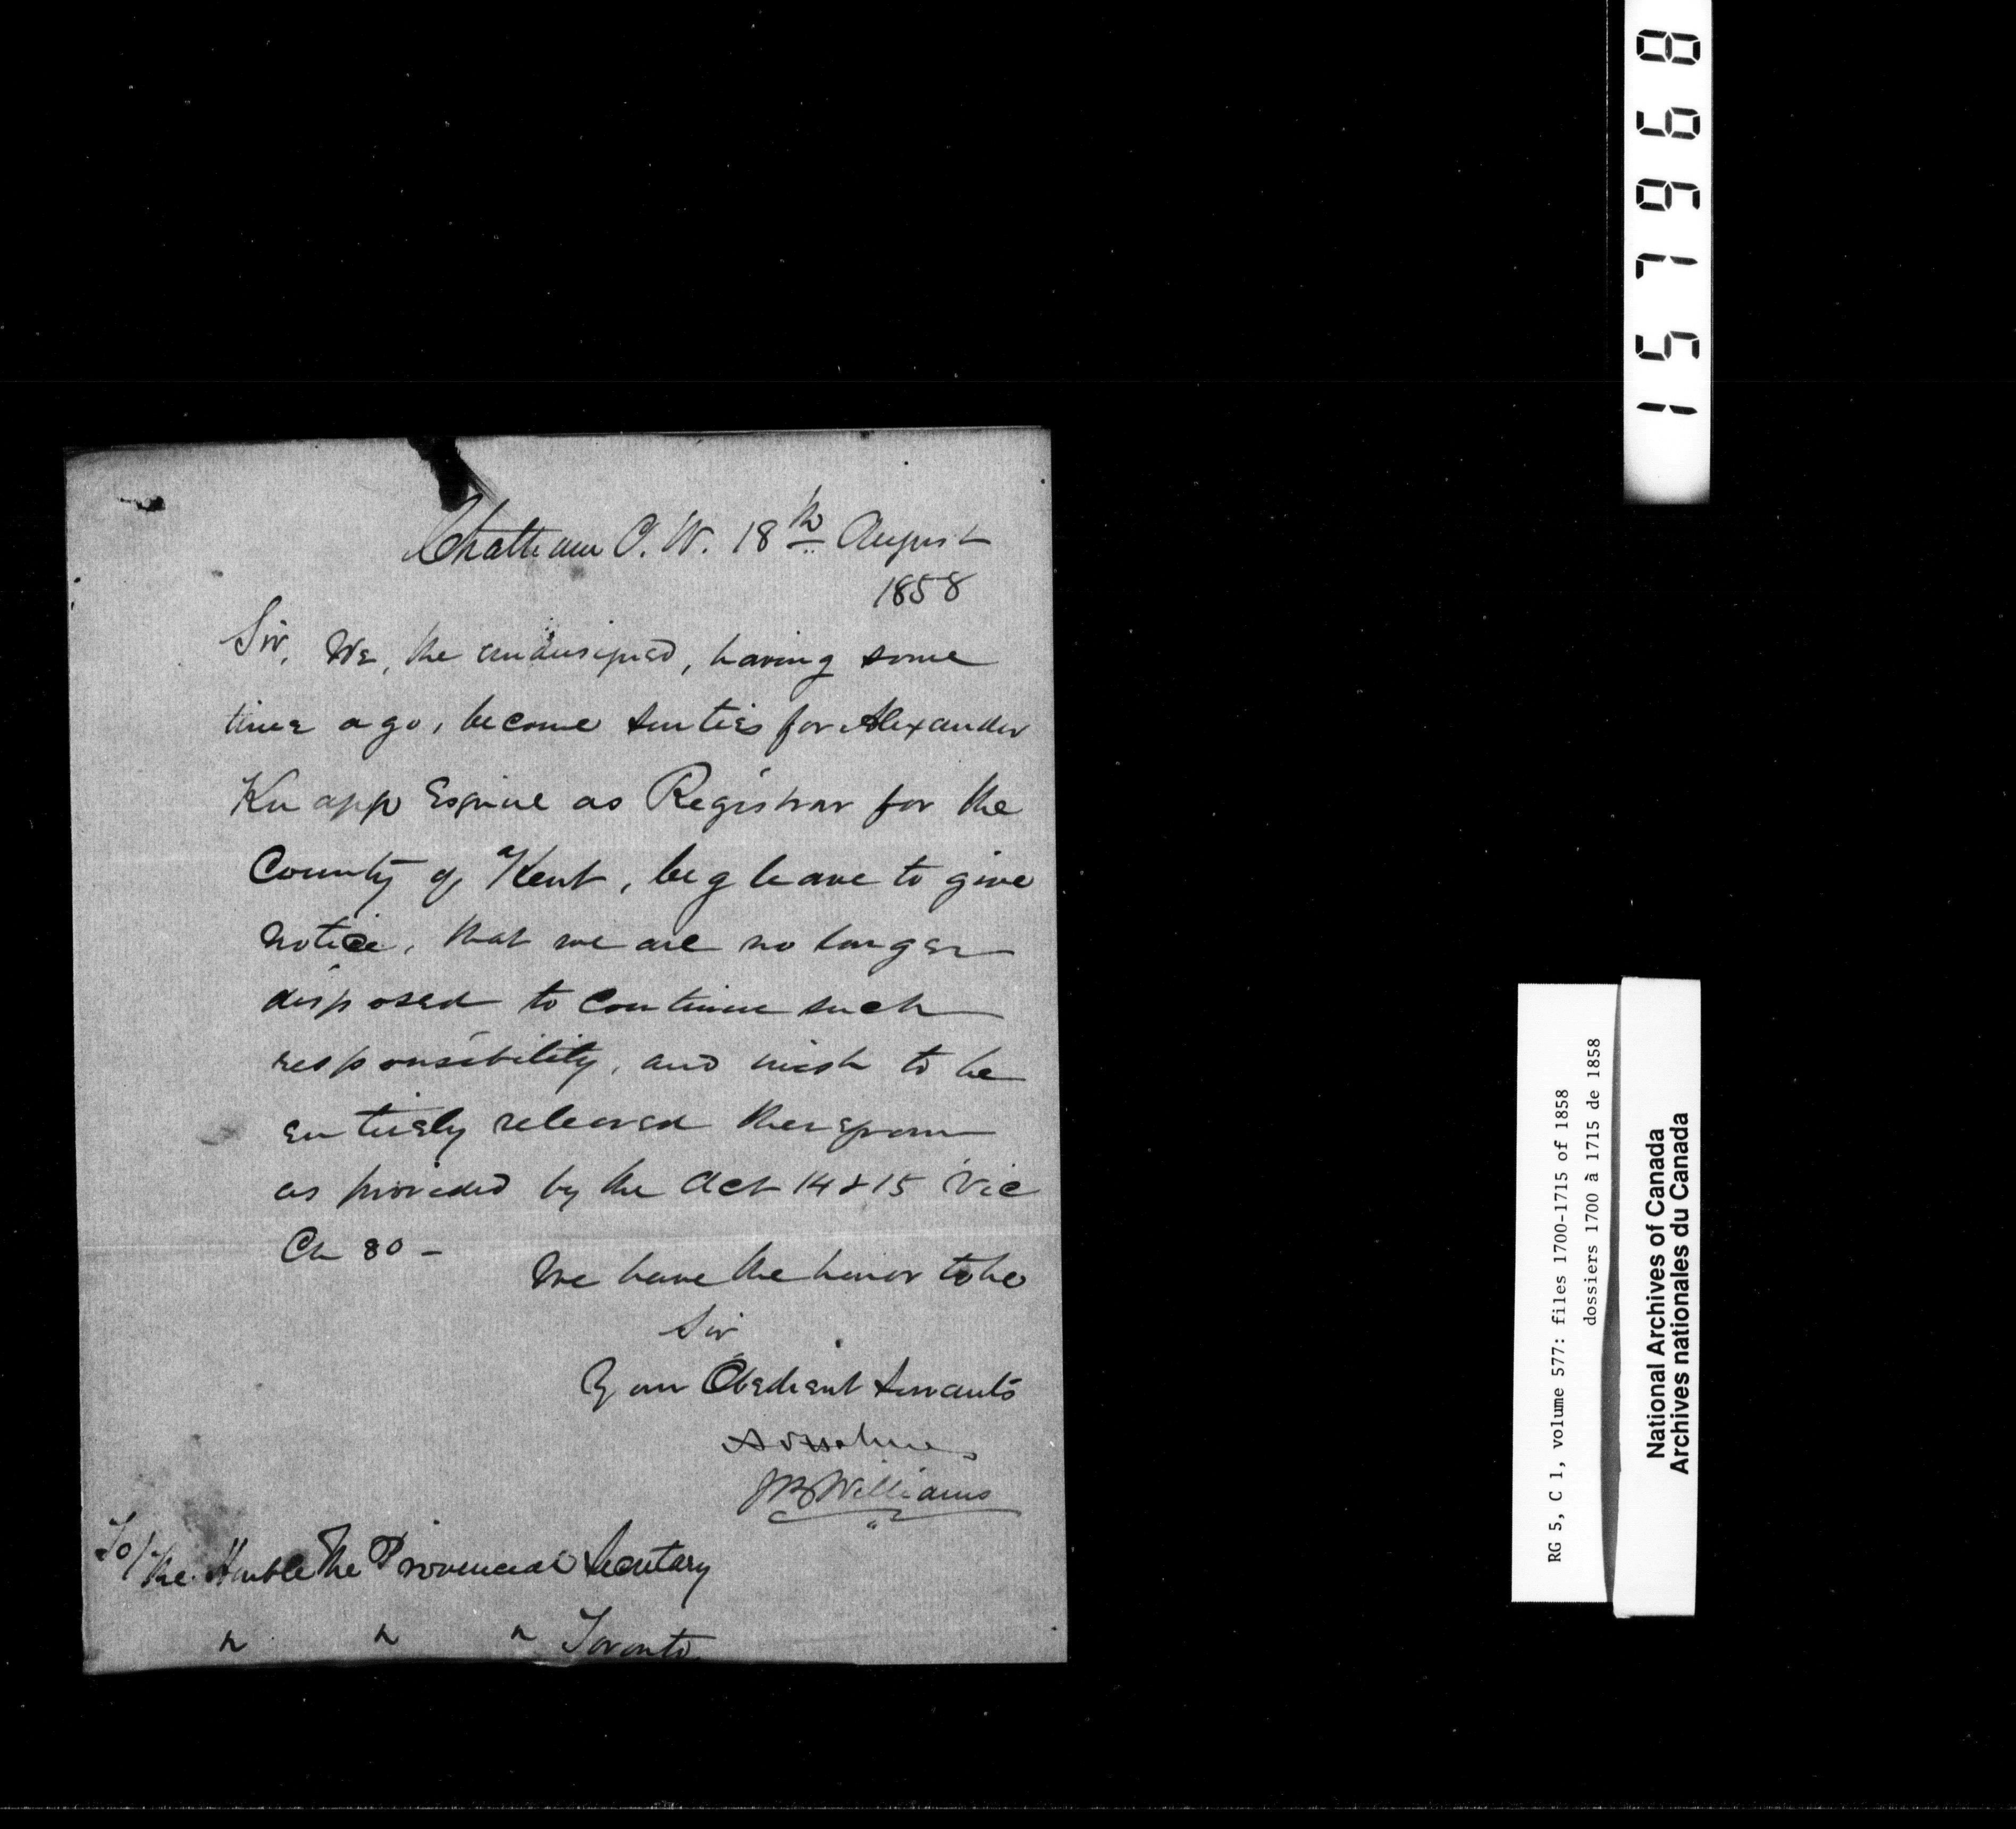 Chatham C.W. 18th August
1858
Sir, We, the undersigned, having some
time ago, become sureties for Alexander
Knapp Esquire as Registrar for the
County of Kent, beg leave to give
notice, that we are no longer
disposed to continue such
responsibility, and wish to be
entirely released therefrom
as provided by the Act 14 & 15 Vic
Ch 80 -
We have the honor to be
Sir
Your Obedient Servants
JB Williams
To/ The Honble The Provincial Secretary
" " " Toronto.
157968
RG 5, C 1, volume 577: files 1700-1715 of 1858
dossiers 1700 à 1715 de 1858
National Archives of Canada
Archives nationales du Canada